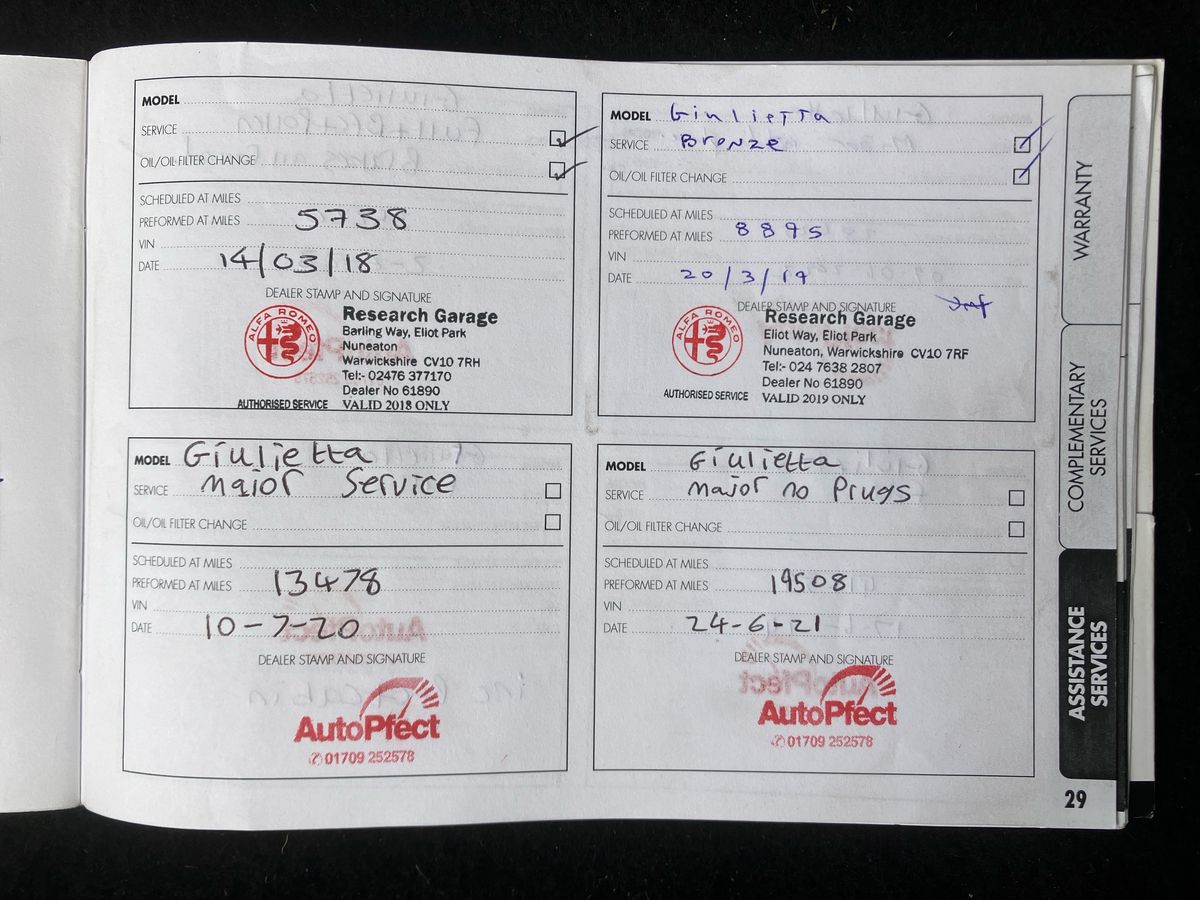 MODEL
SERVICE
OIL/OIL FILTER CHANGE
SCHEDULED AT MILES
PREFORMED AT MILES 5738
VIN
DATE 14/03/18
DEALER STAMP AND SIGNATURE
ALFA ROMEO
Research Garage
Barling Way, Eliot Park
Nuneaton
Warwickshire CV10 7RH
Tel:- 02476 377170
Dealer No 61890
AUTHORISED SERVICE VALID 2018 ONLY
MODEL Giulietta
SERVICE Bronze
OIL/OIL FILTER CHANGE
SCHEDULED AT MILES
PREFORMED AT MILES 8895
VIN
DATE 20/3/19
DEALER STAMP AND SIGNATURE
ALFA ROMEO
Research Garage
Eliot Way, Eliot Park
Nuneaton, Warwickshire CV10 7RF
Tel:- 024 7638 2807
Dealer No 61890
AUTHORISED SERVICE VALID 2019 ONLY
MODEL Giulietta
SERVICE Major Service
OIL/OIL FILTER CHANGE
SCHEDULED AT MILES
PREFORMED AT MILES 13478
VIN
DATE 10-7-20
DEALER STAMP AND SIGNATURE
AutoPfect
✆01709 252578
MODEL Giulietta
SERVICE Major no Prugs
OIL/OIL FILTER CHANGE
SCHEDULED AT MILES
PREFORMED AT MILES 19508
VIN
DATE 24-6-21
DEALER STAMP AND SIGNATURE
AutoPfect
✆01709 252578
WARRANTY
COMPLEMENTARY
SERVICES
ASSISTANCE
SERVICES
29